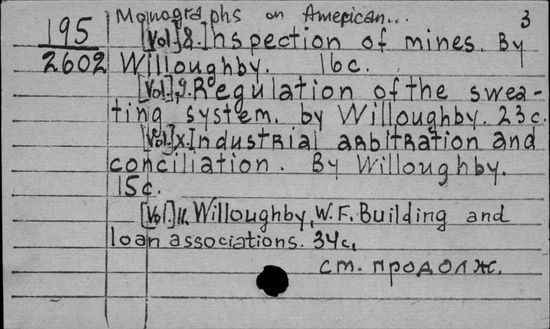 Monographs on American...
3
195
2602
[Vol.]8. Inspection of mines. By
Willoughby. 16 c.
[Vol.]9. Regulation of the swea-
ting system. by Willoughby. 23 c.
[Vol.]X. Industrial arbitration and
conciliation. By Willoughby.
15 c.
[Vol.]11. Willoughby, W.F. Building and
loan associations. 34 c.
см. продолж.